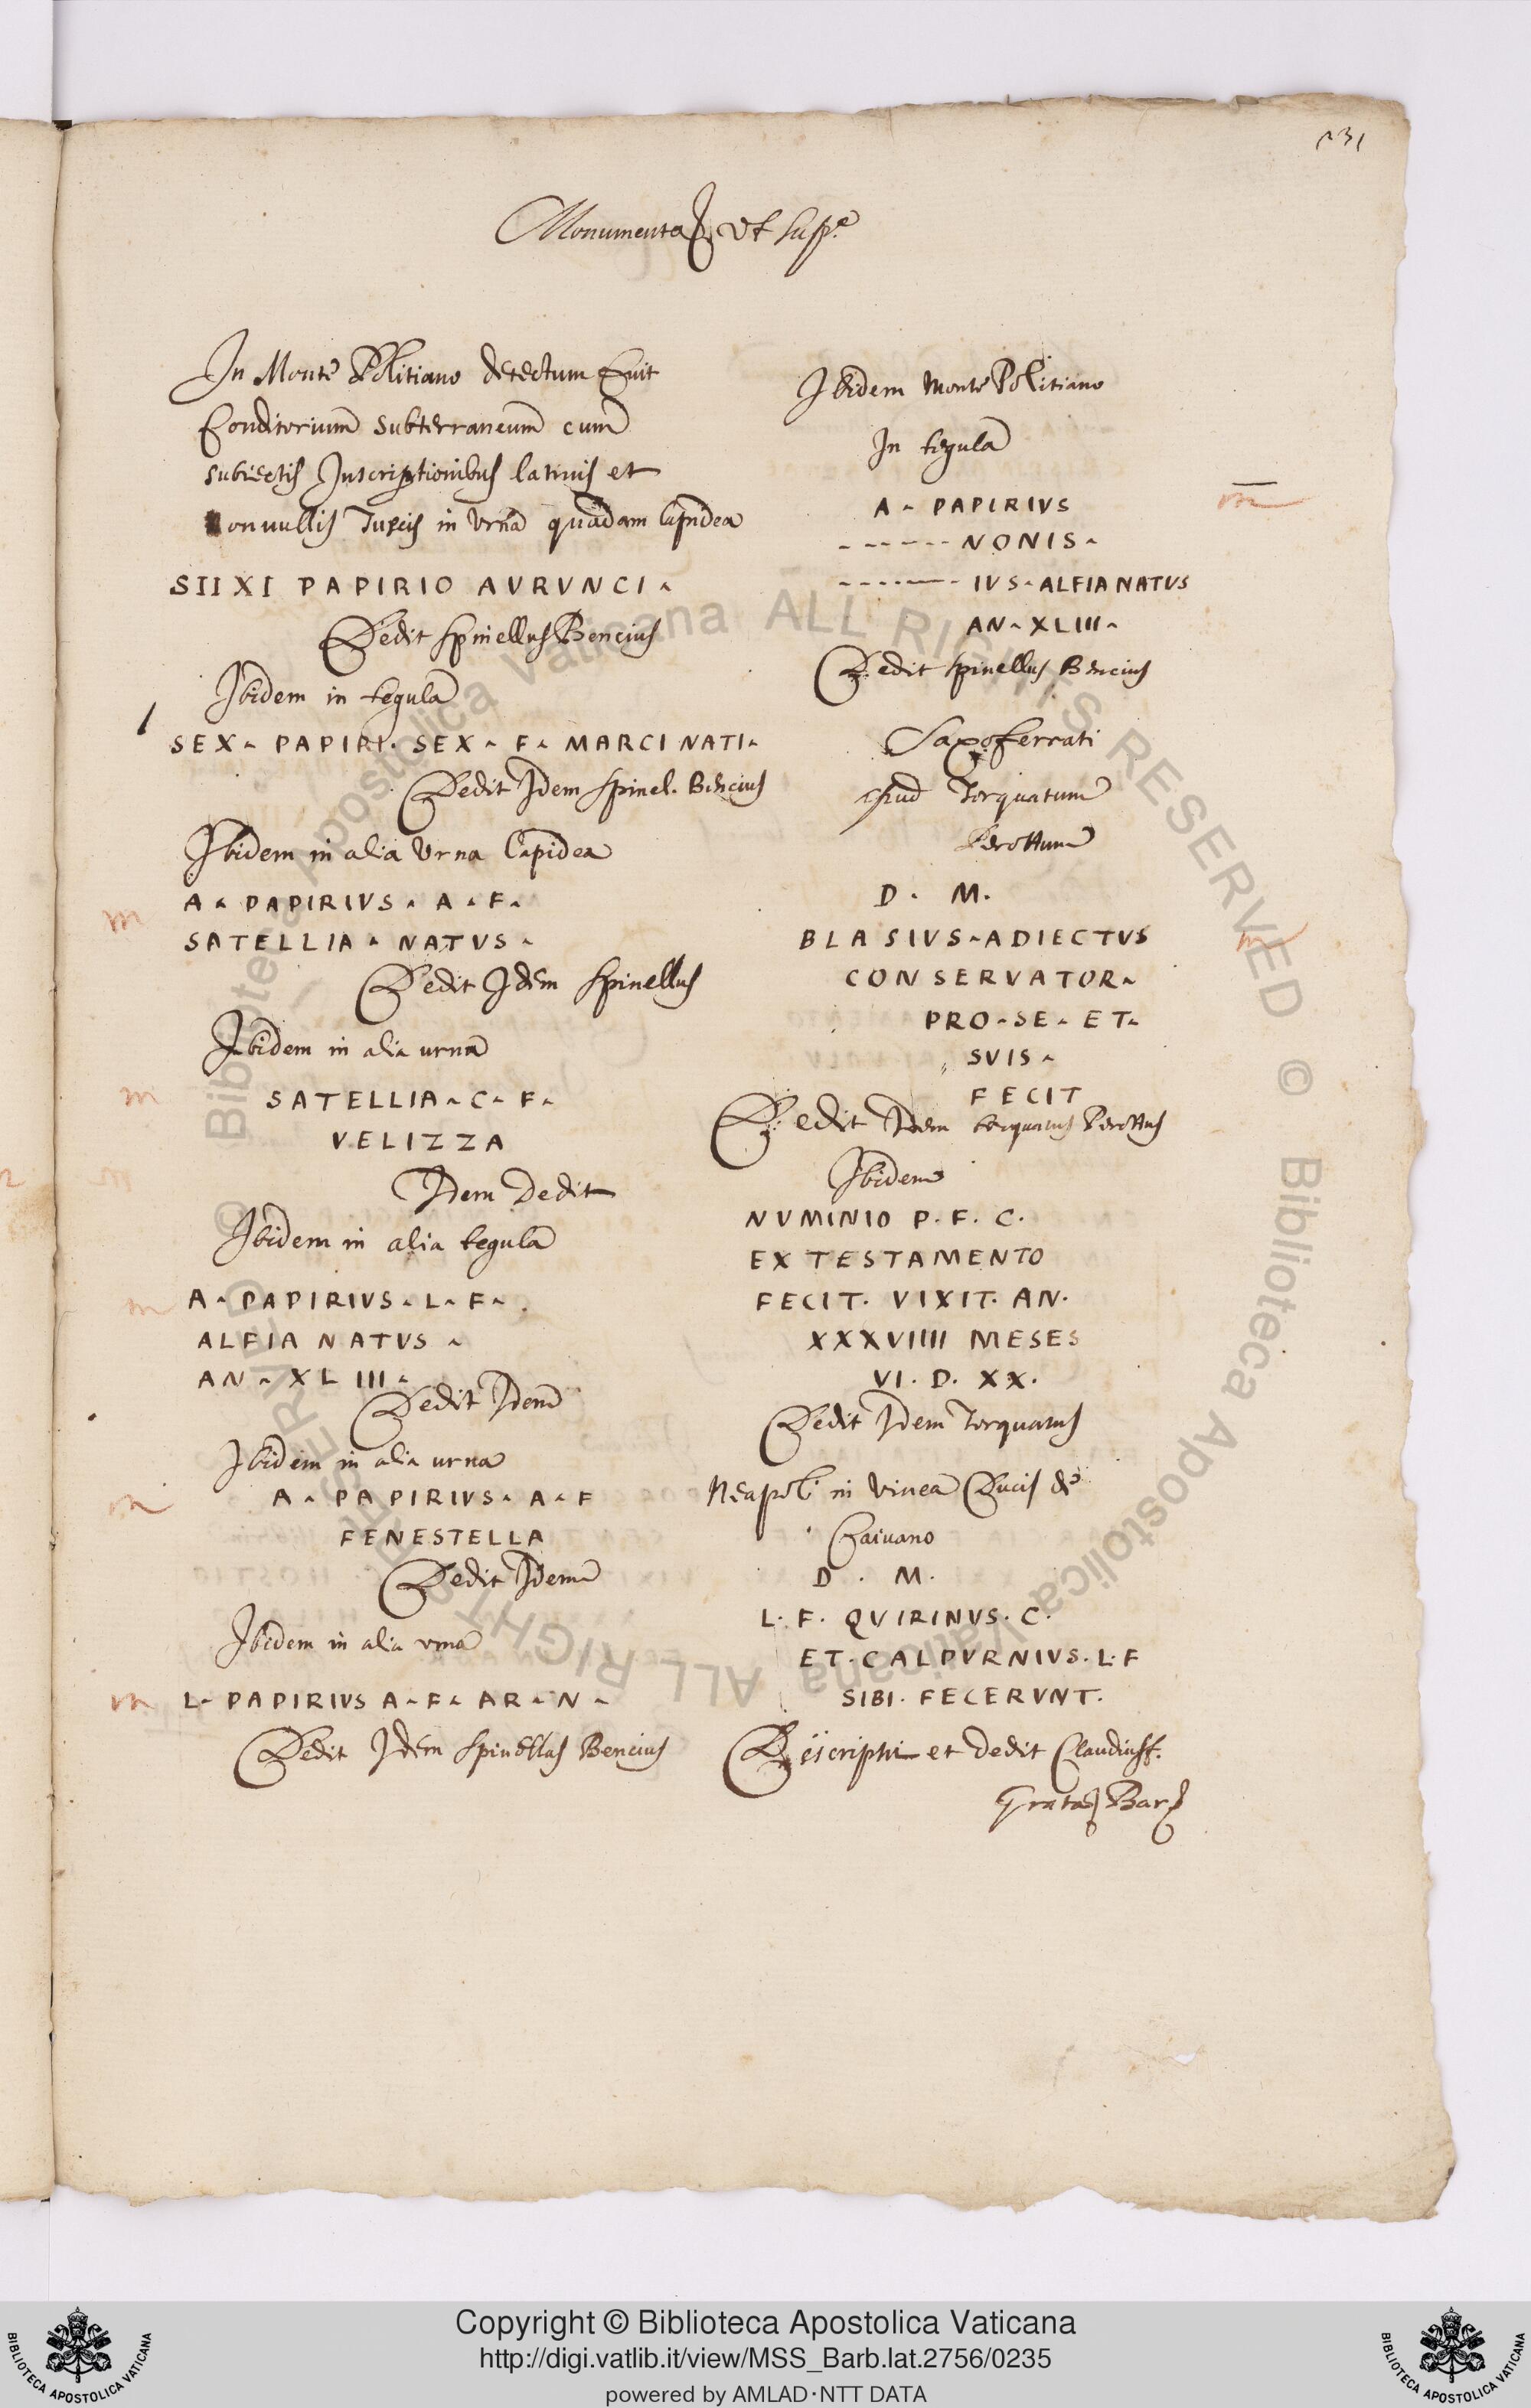 231
Monumenta Vt sup.e
In Monte Politiano detectum fuit
Conditorium subterraneum cum
subiectis Inscriptionibus latinis et
nonnullis Tuscis in Vrna quadam lapidea
SIIXI PAPIRIO AVRVNCI
Dedit Spinellus Bencius
Ibidem in tegula
SEX PAPIRI. SEX F MARCI NATI
Dedit Idem Spinel. Bencius
Ibidem in alia Vrna Lapidea
m
A PAPIRIVS A F
SATELLIA NATVS
Dedit Idem Spinellus
Ibidem in alia urna
m
SATELLIA C F
VELIZZA
Idem Dedit
Ibidem in alia tegula
m
A PAPIRIVS L F
ALFIA NATVS
AN XL III
Dedit Idem
Ibidem in alia urna
m
A PAPIRIVS A F
FENESTELLA
Dedit Idem
Ibidem in alia vrna
m
L PAPIRIVS A F AR N
Dedit Idem Spinellus Bencius
Ibidem Monte Politiano
In tegula
m
A PAPIRIVS
------ NONIS
------- IVS ALFIA NATVS
AN XLIII
Dedit Spinellus Bencius
Saxoferrati
apud Torquatum
Perottum
D. M.
m
BLASIVS ADIECTVS
CONSERVATOR
PRO SE ET
SVIS
FECIT
Dedit Idem torquatus Perottus
Ibidem
NVMINIO P. F. C.
EX TESTAMENTO
FECIT. VIXIT. AN.
XXXVIIII MESES
VI. D. XX.
Dedit Idem Torquatus
Neapoli in Vinea Ducis de
Caiuano
D. M.
L. F. QVIRINVS. C.
ET. CALPVRNIVS. L. F
SIBI. FECERVNT.
et dedit
Copyright © Biblioteca Apostolica Vaticana
http://digi.vatlib.it/view/MSS_Barb.lat.2756/0235
powered by AMLAD·NTT DATA
BIBLIOTECA APOSTOLICA VATICANA
BIBLIOTECA APOSTOLICA VATICANA
© Biblioteca Apostolica Vaticana ALL RIGHTS RESERVED
© Biblioteca Apostolica Vaticana ALL RIGHTS RESERVED